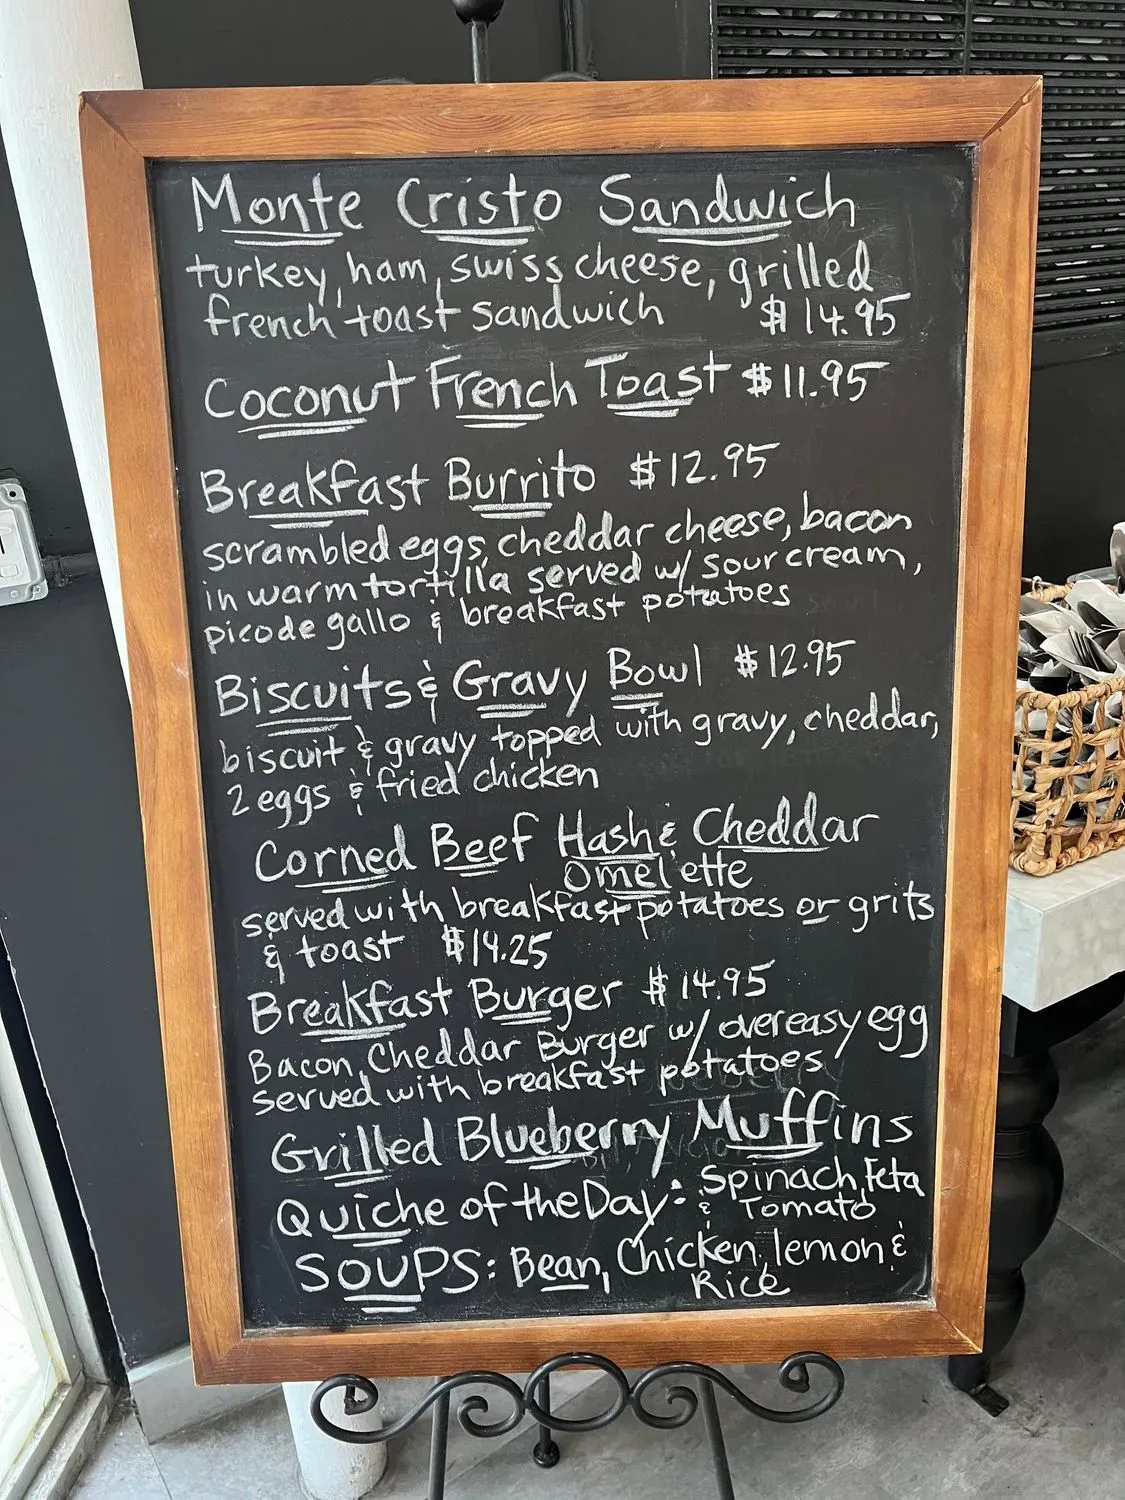 Monte Cristo Sandwich
turkey, ham, swiss cheese, grilled
french toast sandwich $14.95
Coconut French Toast $11.95
Breakfast Burrito $12.95
scrambled eggs, cheddar cheese, bacon
in warm tortilla served w/ sour cream,
pico de gallo & breakfast potatoes
Biscuits & Gravy Bowl $12.95
biscuit & gravy topped with gravy, cheddar,
2 eggs & fried chicken
Corned Beef Hash & Cheddar
Omelette
served with breakfast potatoes or grits
& toast $14.25
Breakfast Burger $14.95
Bacon, Cheddar Burger w/ overeasy egg
served with breakfast potatoes
Grilled Blueberry Muffins
Quiche of the Day: Spinach, Feta
& Tomato
SOUPS: Bean, Chicken, lemon &
Rice